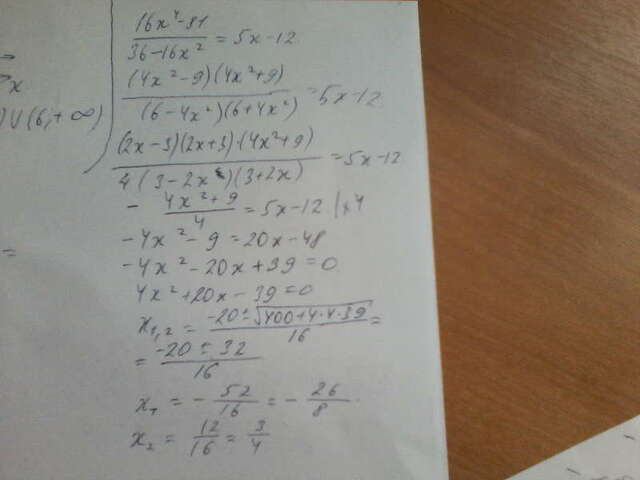 (16x⁴-81)/(36-16x²) = 5x-12
→
x
)∪(6;+∞)
((4x²-9)(4x²+9))/((6-4x²)(6+4x²)) = 5x-12
((2x-3)(2x+3)·(4x²+9))/(4(3-2x)(3+2x)) = 5x-12
- (4x²+9)/4 = 5x-12 |×4
-4x²-9=20x-48
=
-4x²-20x+39=0
4x²+20x-39=0
x₁,₂ = (-20±√(400+4·4·39))/16 =
= (-20±32)/16
x₁ = - 52/16 = - 26/8
x₂ = 12/16 = 3/4